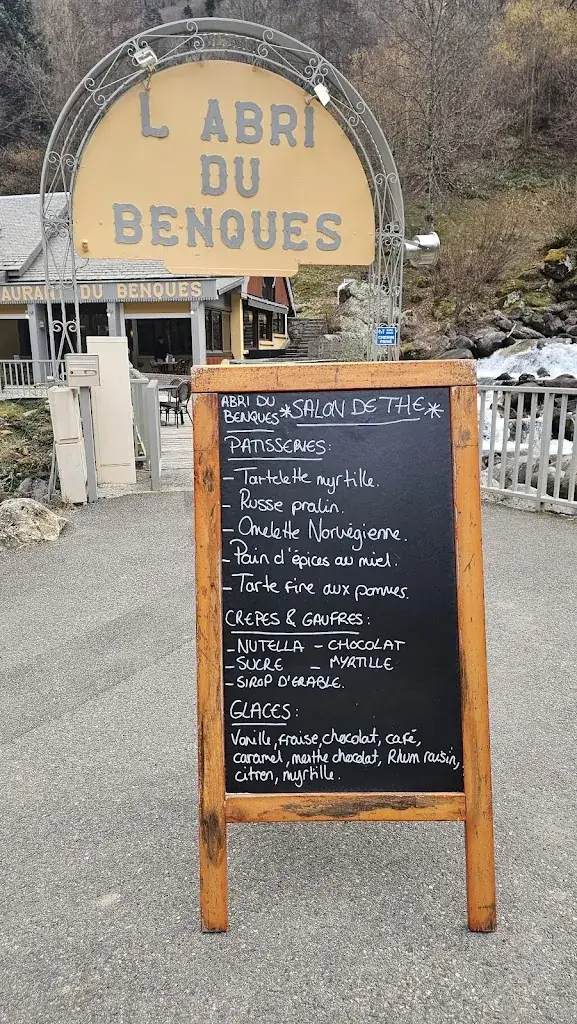 L ABRI
DU
BENQUES
AURANT DU BENQUES
ABRI DU
BENQUES *SALON DE THE*
PATISSERIES:
- Tartelette myrtille.
- Russe pralin.
- Omelette Norvégienne.
- Pain d'épices au miel.
- Tarte fine aux pommes.
CREPES & GAUFRES:
- NUTELLA - CHOCOLAT
- SUCRE - MYRTILLE
- SIROP D'ERABLE.
GLACES:
Vanille, fraise, chocolat, café,
caramel, menthe chocolat, Rhum raisin,
citron, myrtille.